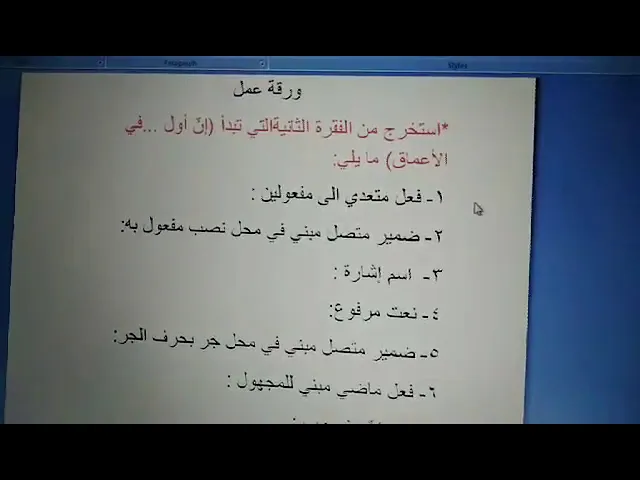 Paragraph
Styles
ورقة عمل
*استخرج من الفقرة الثانيةالتي تبدأ (إنّ أول ...في
الأعماق) ما يلي:
١- فعل متعدي الى مفعولين :
٢- ضمير متصل مبني في محل نصب مفعول به:
٣- اسم إشارة :
٤- نعت مرفوع:
٥- ضمير متصل مبني في محل جر بحرف الجر:
٦- فعل ماضي مبني للمجهول :